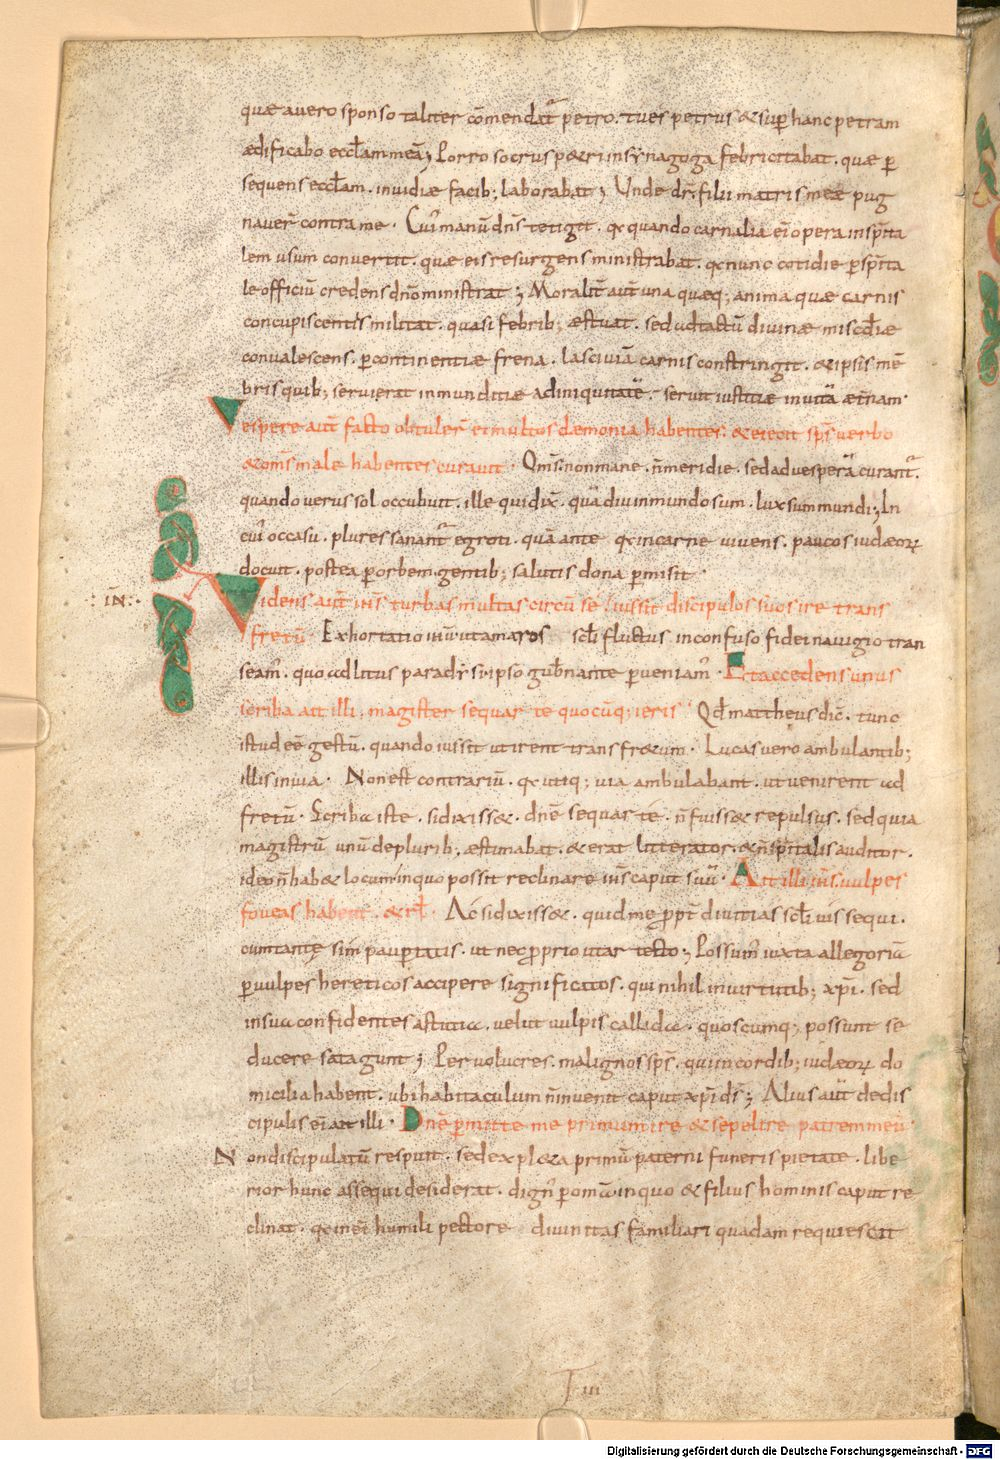 quæ a vero sponso taliter cōmendat̄ petro. tu es petrus & sup hanc petram
ædificabo eccl̄am meā; Porro socrus p&ri in synagoga febricitabat. quæ p
sequens eccl̄am. invidiæ facib; laborabat; Unde dr̄. filii matris meæ pug
naver̄ contra me. Cui' manū dn̄s tetigit. qꝛ quando carnalia ei' opera in sp̄ita
lem usum convertit. quæ eis resurgens ministrabat. qꝛ nunc cotidie p sp̄ita
le officiū credens dn̄o ministrat; Moralit̄ aut̄ una quæq; anima quæ carnis
concupiscentiis militat. quasi febrib; æstuat. sed ad tactū divinæ misc̄diæ
convalescens. p continentiæ frena. lasciviā carnis constringit. & ipsis mē
bris quib; servierat inmunditiæ ad iniquitatē. servit iustitiæ in vitā æt̄nam.
Vespere aut̄ facto obtuler̄ ei multos dæmonia habentes. & eiecit sp̄s verbo
& om̄s male habentes curavit. Qm̄s. non mane. n̄ meridie. sed ad vesperā curant̄.
quando verus sol occubuit. ille qui dix̄. quādiu in mundo sum. lux sum mundi; In
cui' occasu. plures sanant̄ egroti. quā ante qꝛ in carne vivens. paucos iudæoꝝ
docuit. postea p orbem. gentib; salutis dona p misit.
: IN :.
Videns aut̄ ih̄s turbas multas circū se iussit discipulos suos ire trans
fretū. Exhortatio in̄ ut amaros sc̄li fluctus inconfuso fidei navigio tran
seam'. quo ad litus paradysi ipso gub̄nante pveniam'. Et accedens unus
scriba ait illi. magister sequar te quocūq; ieris. Qd̄ mattheus dic̄. tunc
istud eē gestū. quando iussit ut irent trans fr&um. Lucas vero ambulantib;
illis in via. Non est contrariū. qꝛ utiq; via ambulabant. ut venirent ad
fretū. Scriba iste. si dixiss&. dn̄e sequar te. n̄ fuiss& repulsus. sed quia
magistrū unū de plurib; æstimabat. & erat litterator. & n̄ sp̄italis auditor.
ideo n̄ hab& locum in quo possit reclinare ih̄s caput suū. Ait illi ih̄s. vulpes
foveas habent. & rl̄. Ac si dixiss&. quid me ppt̄ divitias sc̄li vis sequi.
cum tantę sim paup̄tatis. ut nec pprio utar tecto; Possum' iuxta allegoriā
p vulpes hereticos accipere significatos. qui nihil in virtutib; xp̄i. sed
in sua confidentes astutia. velut vulpis callida. quoscumq; possunt se
ducere satagunt; Per volucres. malignos sp̄s. qui in cordib; iudæoꝝ do
micilia habent. ubi habitaculum n̄ invenit caput xp̄i ds̄; Alius aut̄ de dis
cipulis ei' ait illi. Dn̄e pmitte me primum ire & sepelire patrem meū.
Non discipulatū respuit. sed expl&a primū paterni funeris pietate. libe
rior hunc assequi desiderat. dign' p om̄ia in quo & filius hominis caput re
clinat. qꝛ in ei' humili pectore divinitas familiari quadam requiescit
Digitalisierung gefördert durch die Deutsche Forschungsgemeinschaft - DFG